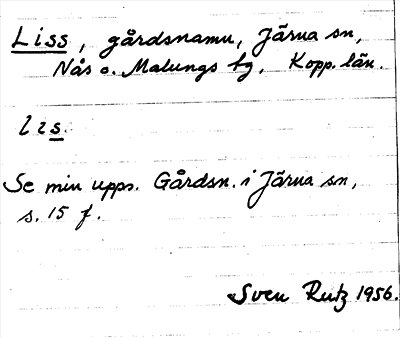 Liss, gårdsnamn, Järna sn,
Nås o. Malungs hg, Kopp. län.
lis.
Se min upps. Gårdsn. i Järna sn,
s. 15 f.
Sven Rutz 1956.